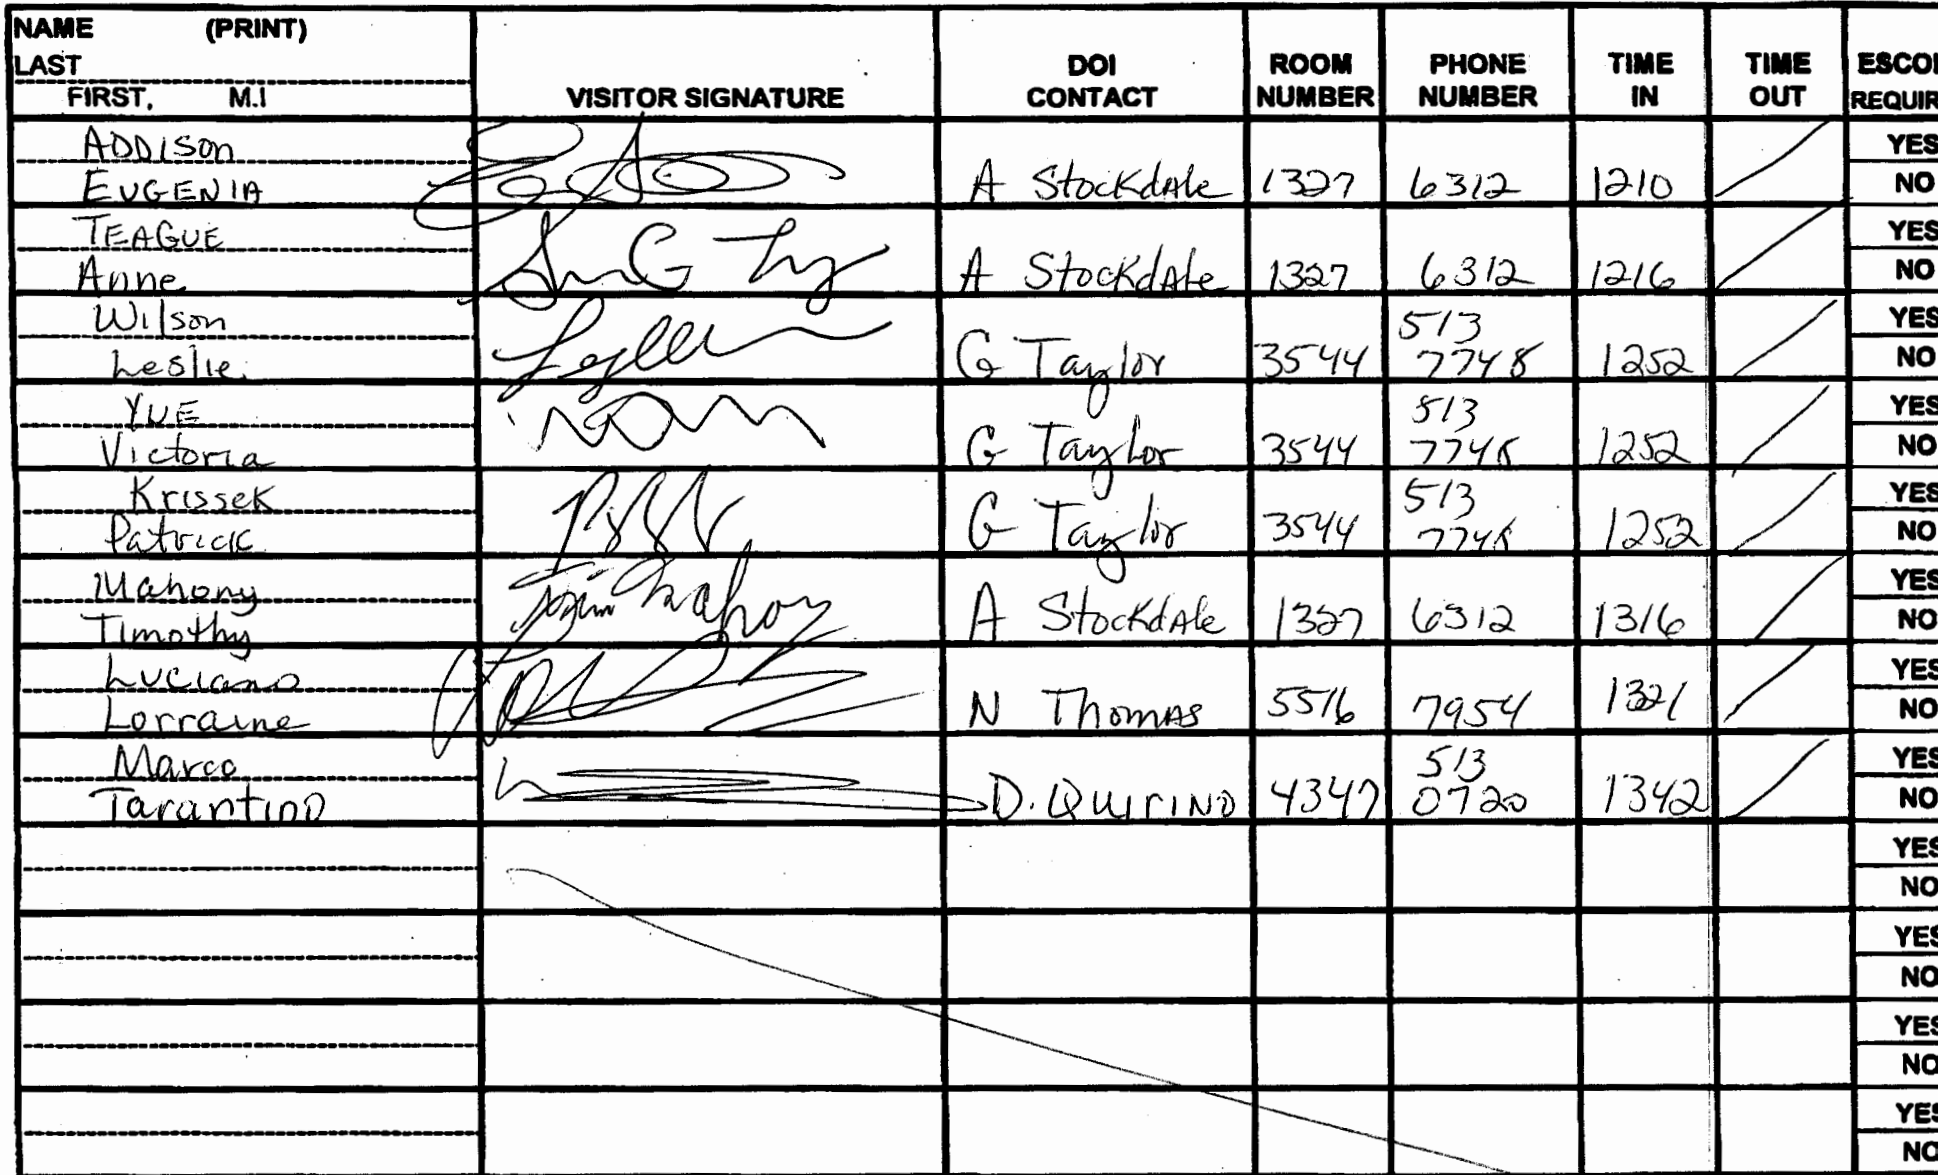 NAME (PRINT)
LAST
FIRST, M.I
VISITOR SIGNATURE
DOI CONTACT
ROOM NUMBER
PHONE NUMBER
TIME IN
TIME OUT
ESCO
REQUIR
ADDISON
EUGENIA A Stockdale 1327 6312 1210 YES NO
TEAGUE
Anne A Stockdale 1327 6312 1216 YES NO
Wilson 513
Leslie G Taylor 3544 7748 1252 YES NO
YUE 513
Victoria G Taylor 3544 7748 1252 YES NO
Krissek 513
Patrick G Taylor 3544 7748 1252 YES NO
Mahony
Timothy A Stockdale 1327 6312 1316 YES NO
Luciano
Lorraine N Thomas 5516 7954 1321 YES NO
Marco 513
Tarantino D. Quirino 4347 0720 1342 YES NO
YES
NO
YES
NO
YES
NO
YES
NO